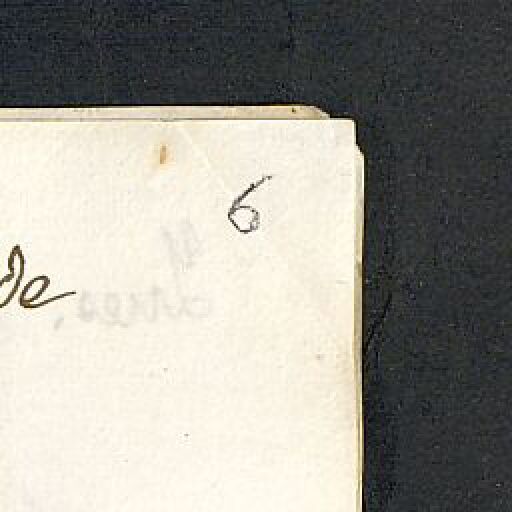 6
de